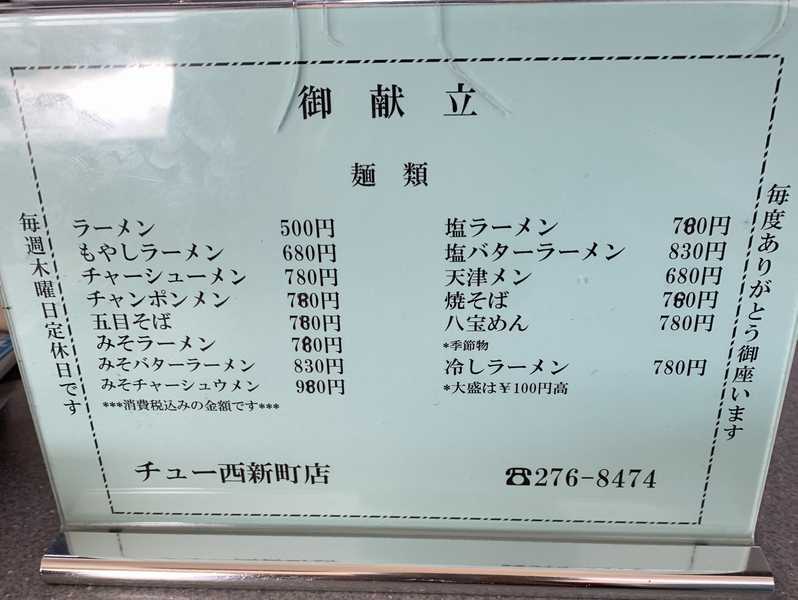 御献立
麺類
ラーメン 500円
もやしラーメン 680円
チャーシューメン 780円
チャンポンメン 780円
五目そば 780円
みそラーメン 780円
みそバターラーメン 830円
みそチャーシュウメン 980円
***消費税込みの金額です***
塩ラーメン 780円
塩バターラーメン 830円
天津メン 680円
焼そば 780円
八宝めん 780円
*季節物
冷しラーメン 780円
*大盛は￥100円高
毎週木曜日定休日です
毎度ありがとう御座います
チュー西新町店
☎276-8474